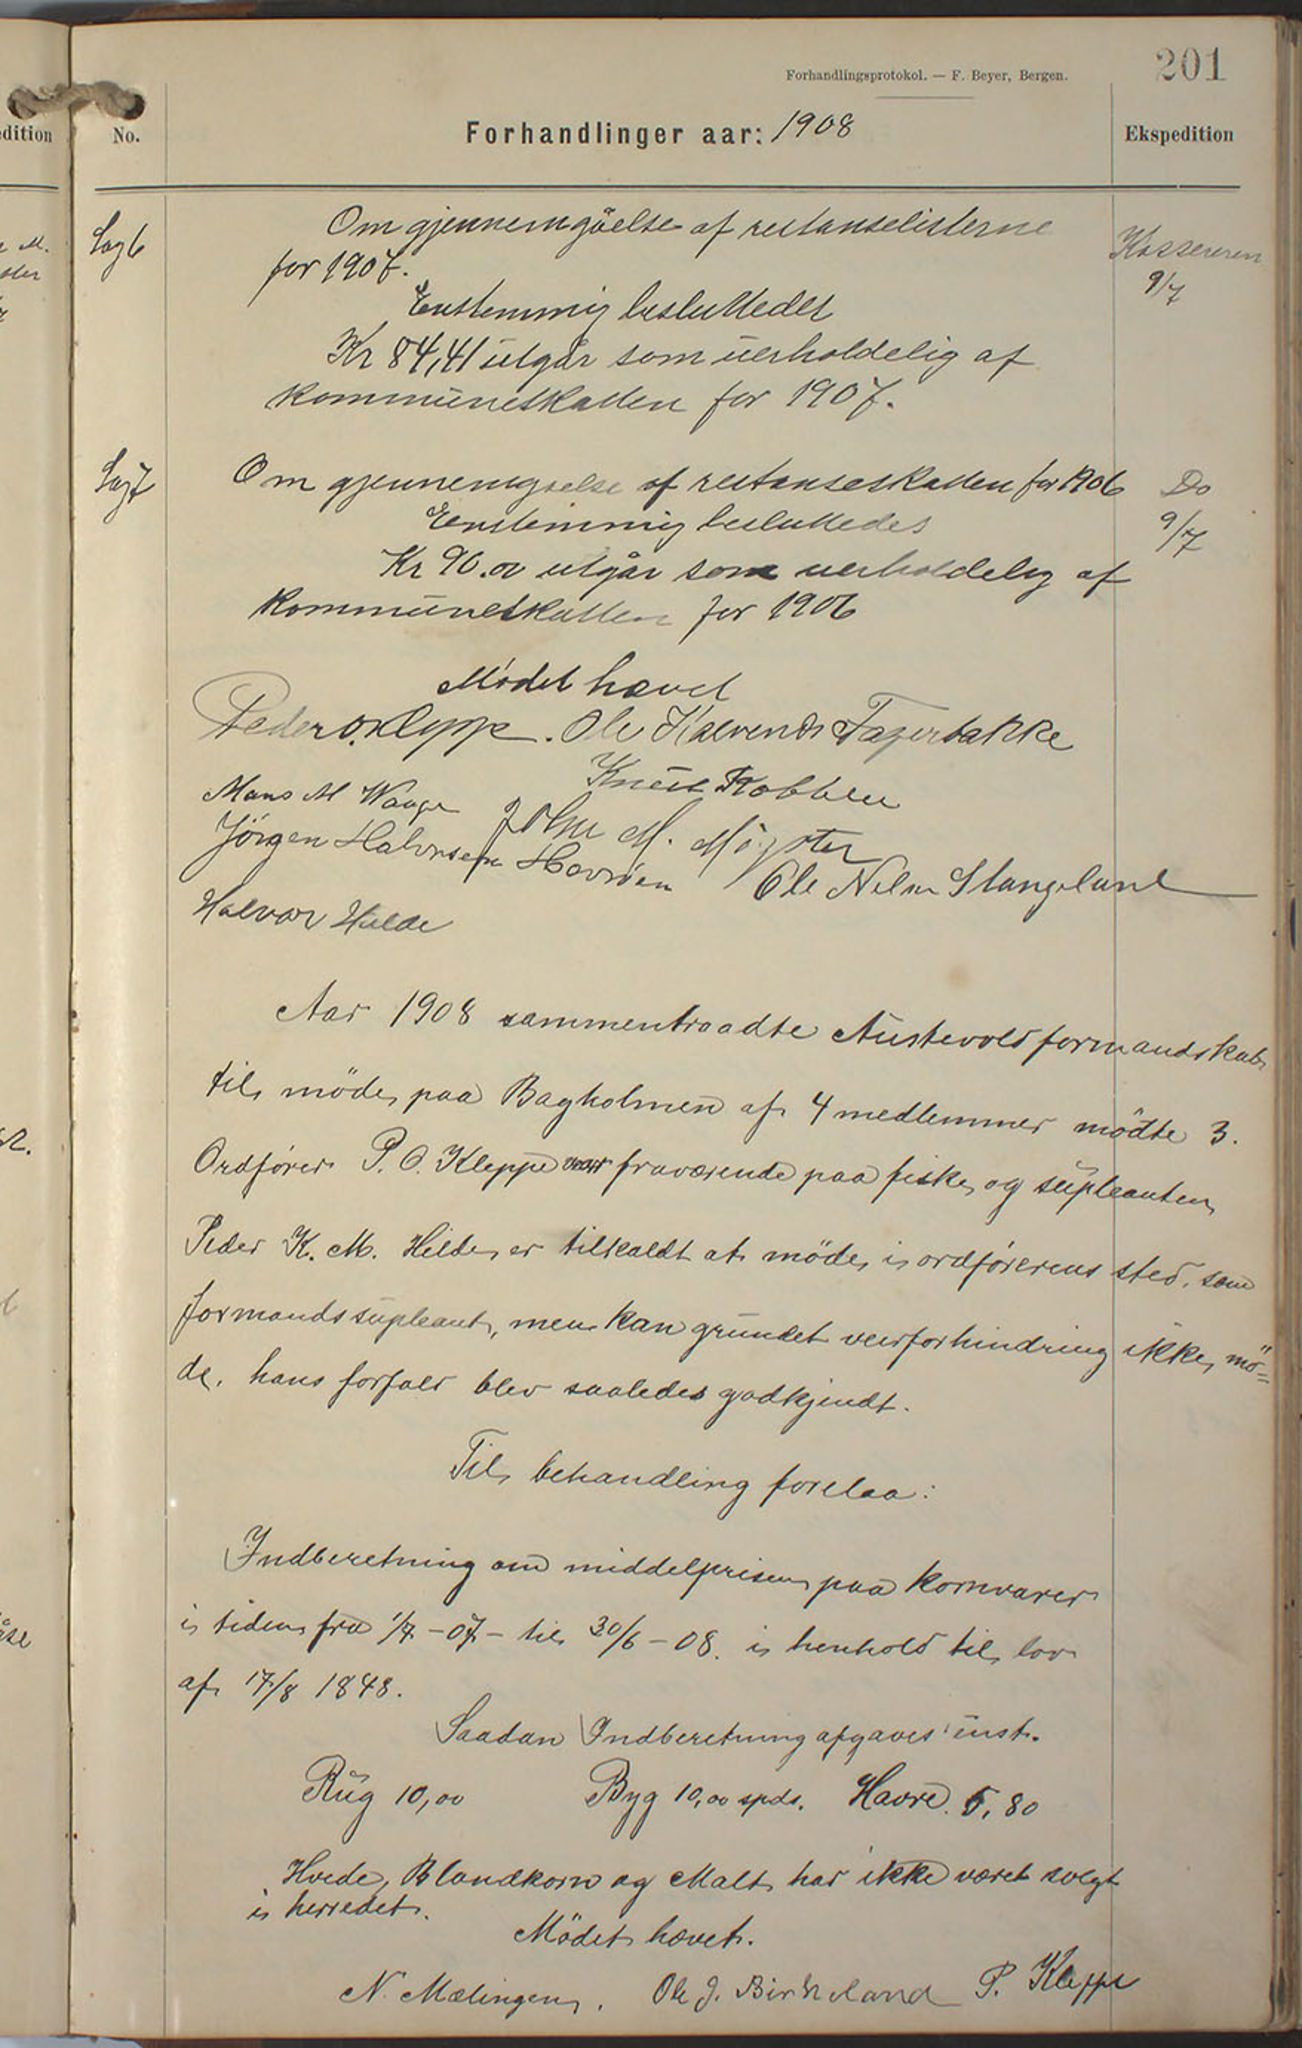 Forhandlingsprotokol. — F. Beyer, Bergen.
201
edition
No.
Forhandlinger aar: 1908
Ekspedition
Sag 6
Om gjennemgåelse af restanselisterne
for 1907.
Kassereren
9/7
Enstemmig besluttedes
Kr 84,41 utgår som uerholdelig af
kommuneskatten for 1907.
Sag 7
Om gjennemgåelse af restanseskatten for 1906
Do
9/7
Enstemmig besluttedes
Kr 90.00 utgår som uerholdelig af
kommuneskatten for 1906
Mødet hævet
Peder O. Kleppe. Ole Kalvenes Fagerbakke
Knut Rabben
Mans M Waage
John M. Møgster
Jörgen Halvorsen Havrøen
Ole Nelsen Stangeland
Halvor Hilde
Aar 1908 sammentraadte Austevold formandskab
til möde paa Bagholmen af 4 medlemmer mödte 3.
Ordfører P. O. Kleppe var fraværende paa fiske og supleanten
Peder K. M. Hilde er tilkaldt at möde i ordførerens sted. som
formandssupleant, men kan grundet veirforhindring ikke mö=
de. hans forfald blev saaledes godkjendt.
Til behandling forelaa:
Indberetning om middelprisen paa kornvarer
i tiden fra 1/7 - 07 - til 30/6 - 08. i henhold til lov
af 17/8 1848.
Saadan Indberetning afgaves enst.
Rug 10,00 Byg 10,00 spds. Havre. 5,80
Hvede, Blandkorn og Malt har ikke været solgt
i herredet.
Mödet hævet.
N. Mælingen. Ole J. Birkeland P. Kleppe